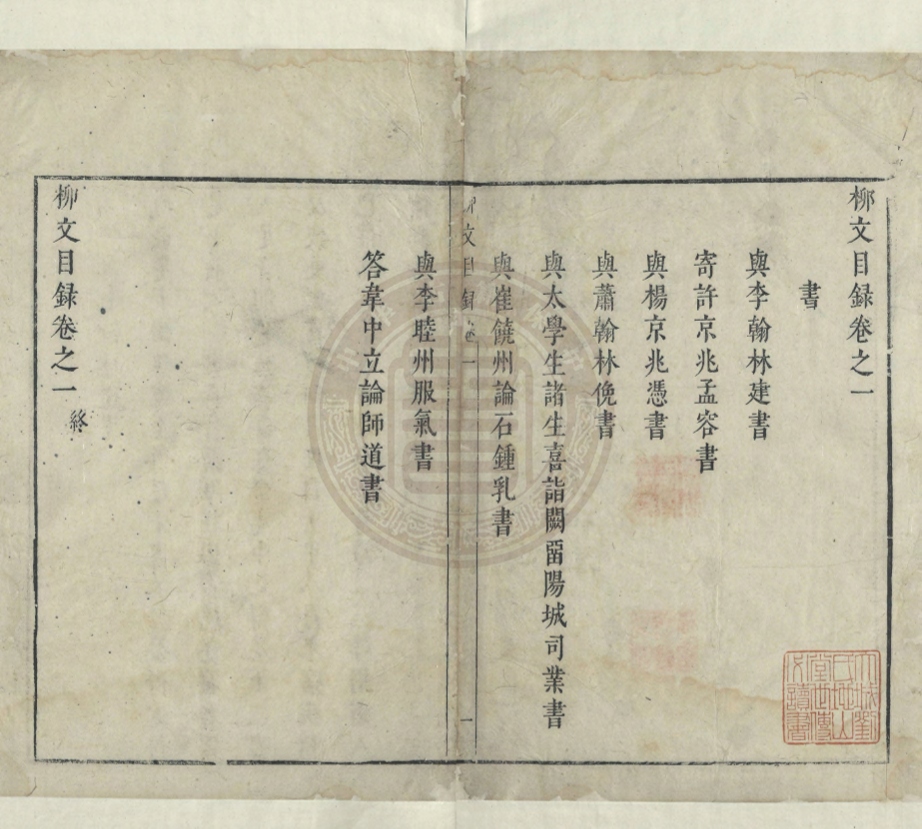 柳文目録卷之一
書
與李翰林建書
寄許京兆孟容書
與楊京兆憑書
與蕭翰林俛書
與太學生諸生喜詣闕畱陽城司業書
與崔饒州論石鍾乳書
柳文目録卷一
一
與李睦州服氣書
答韋中立論師道書
柳文目録卷之一
終